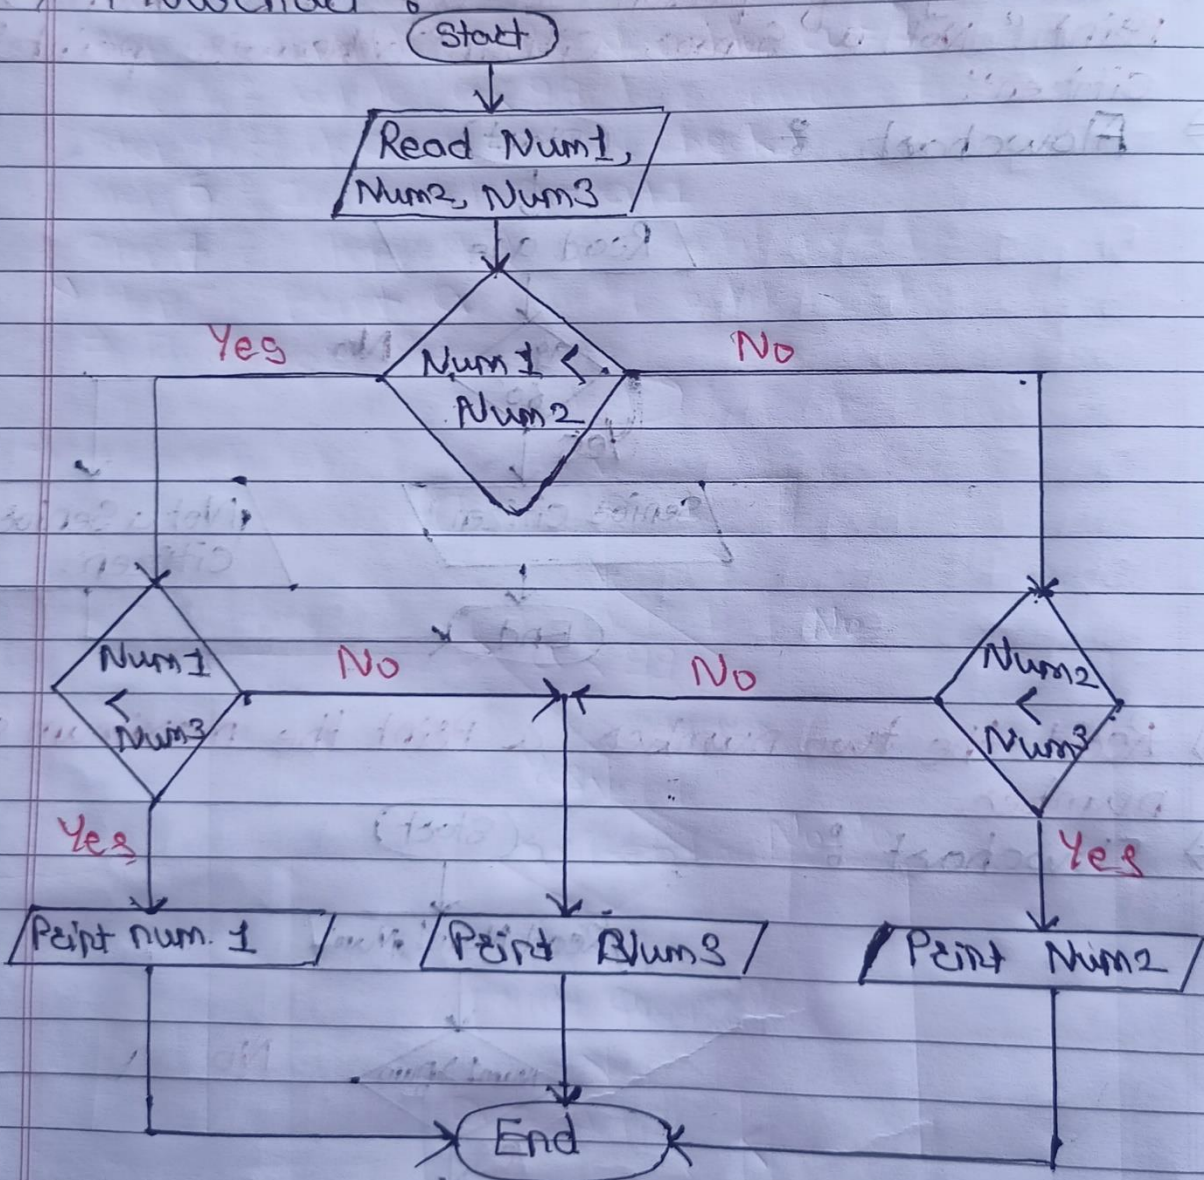 Start
Read Num1,
Num2, Num3
Num1 <
Num2
Yes
No
Num1
<
Num3
No
No
Num2
<
Num3
Yes
Yes
Print num. 1
Print Num3
Print Num2
End